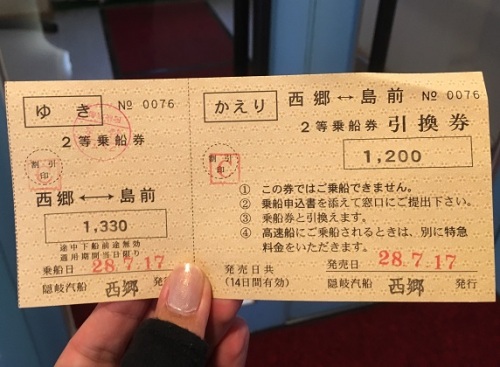 ゆき № 0076
2等乗船券
割引
印
西郷 ↔ 島前
1,330
途中下船前途無効
適用期間当日限り
乗船日 28.7.17
隠岐汽船 西郷 発行
かえり 西郷 ↔ 島前 № 0076
2等乗船券 引換券
割引
印
1,200
① この券ではご乗船できません。
② 乗船申込書を添えて窓口にご提出下さい。
③ 乗船券と引換えます。
④ 高速船にご乗船されるときは、別に特急
料金をいただきます。
発売日共
(14日間有効)
発売日 28.7.17
隠岐汽船 西郷 発行